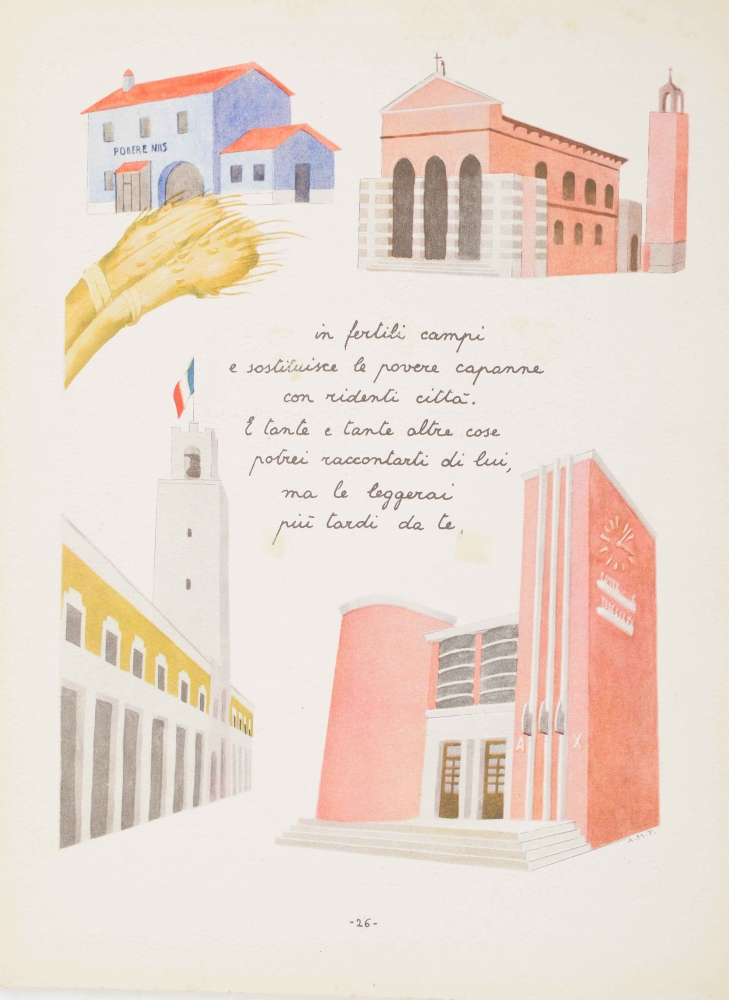 PODERE N115
in fertili campi
e sostituisce le povere capanne
con ridenti città.
E tante e tante altre cose
potrei raccontarti di lui,
ma le leggerai
più tardi da te.
A X
A.M.T.
-26-